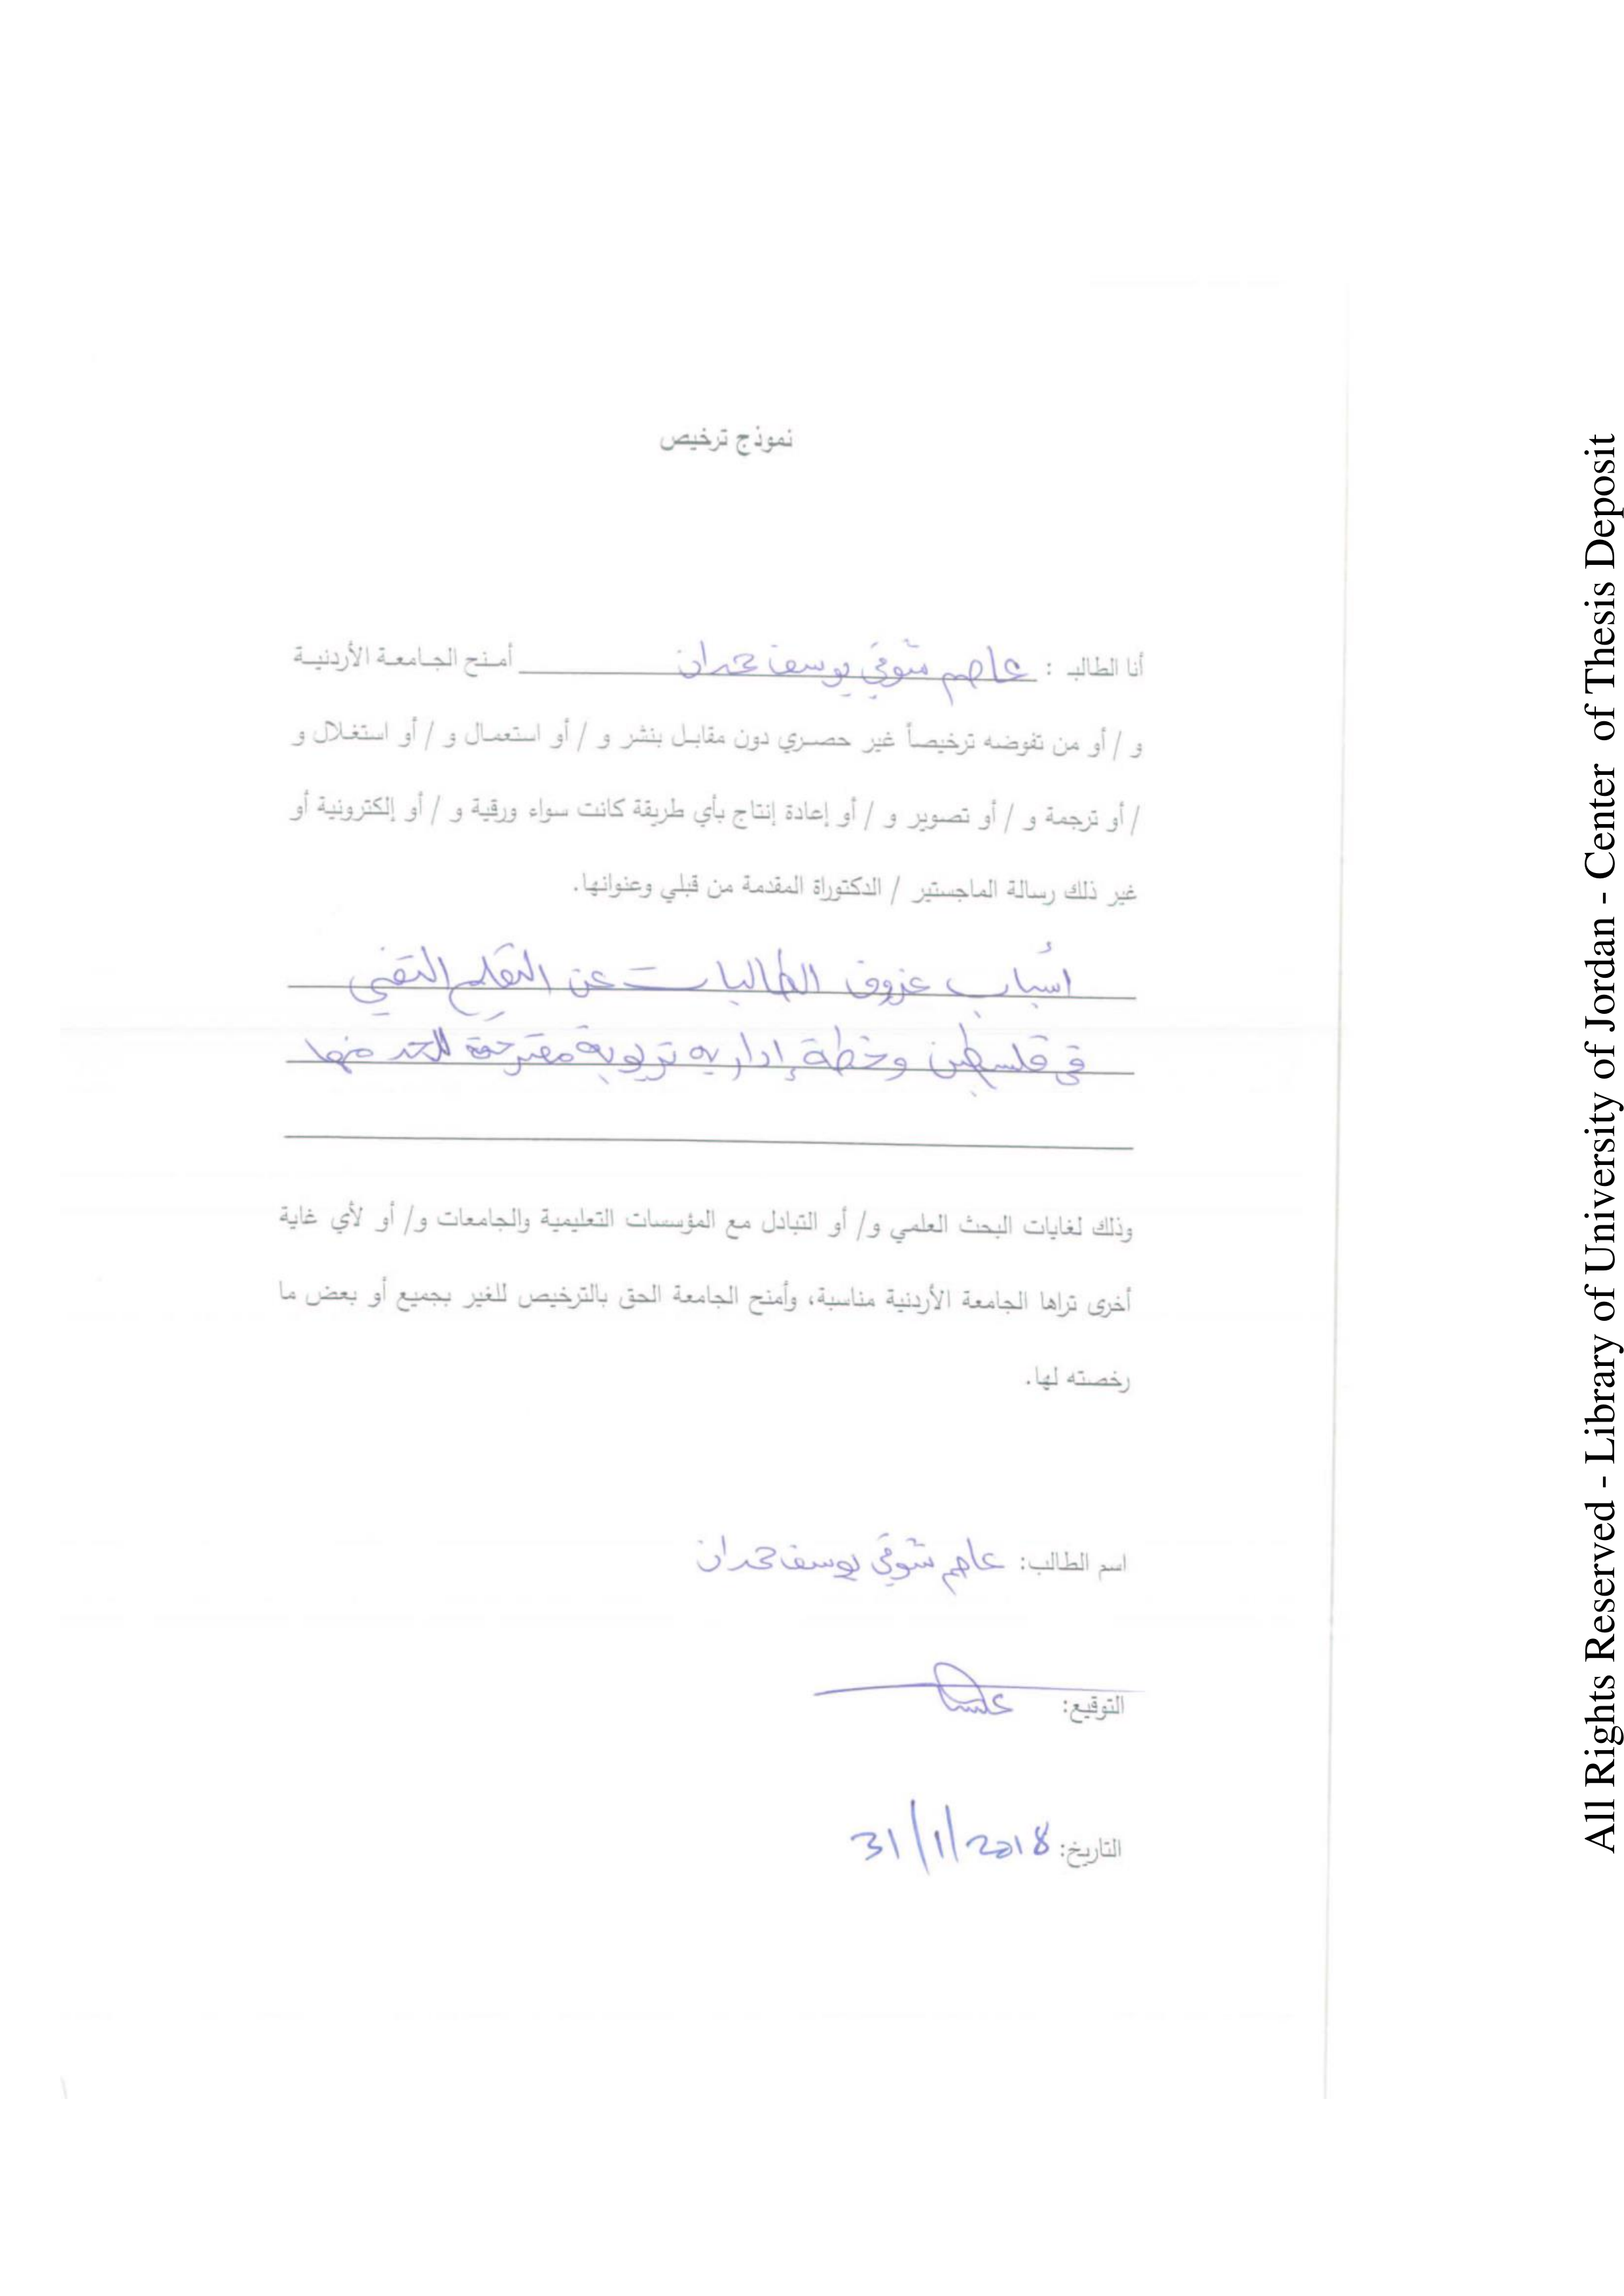 نموذج ترخيص
أنا الطالب : عاصم شوقي يوسف حمدان أمنح الجامعة الأردنية
و / أو من تفوضه ترخيصاً غير حصري دون مقابل بنشر و / أو استعمال و / أو استغلال و
/ أو ترجمة و / أو تصوير و / أو إعادة إنتاج بأي طريقة كانت سواء ورقية و / أو إلكترونية أو
غير ذلك رسالة الماجستير / الدكتوراة المقدمة من قبلي وعنوانها.
أسباب عزوف الطالبات عن التعليم التقني
في فلسطين وخطة إدارية تربوية مقترحة للحد منها
وذلك لغايات البحث العلمي و/ أو التبادل مع المؤسسات التعليمية والجامعات و/ أو لأي غاية
أخرى تراها الجامعة الأردنية مناسبة، وأمنح الجامعة الحق بالترخيص للغير بجميع أو بعض ما
رخصته لها.
اسم الطالب: عاصم شوقي يوسف حمدان
التوقيع:
التاريخ: 31/1/2018
All Rights Reserved - Library of University of Jordan - Center of Thesis Deposit